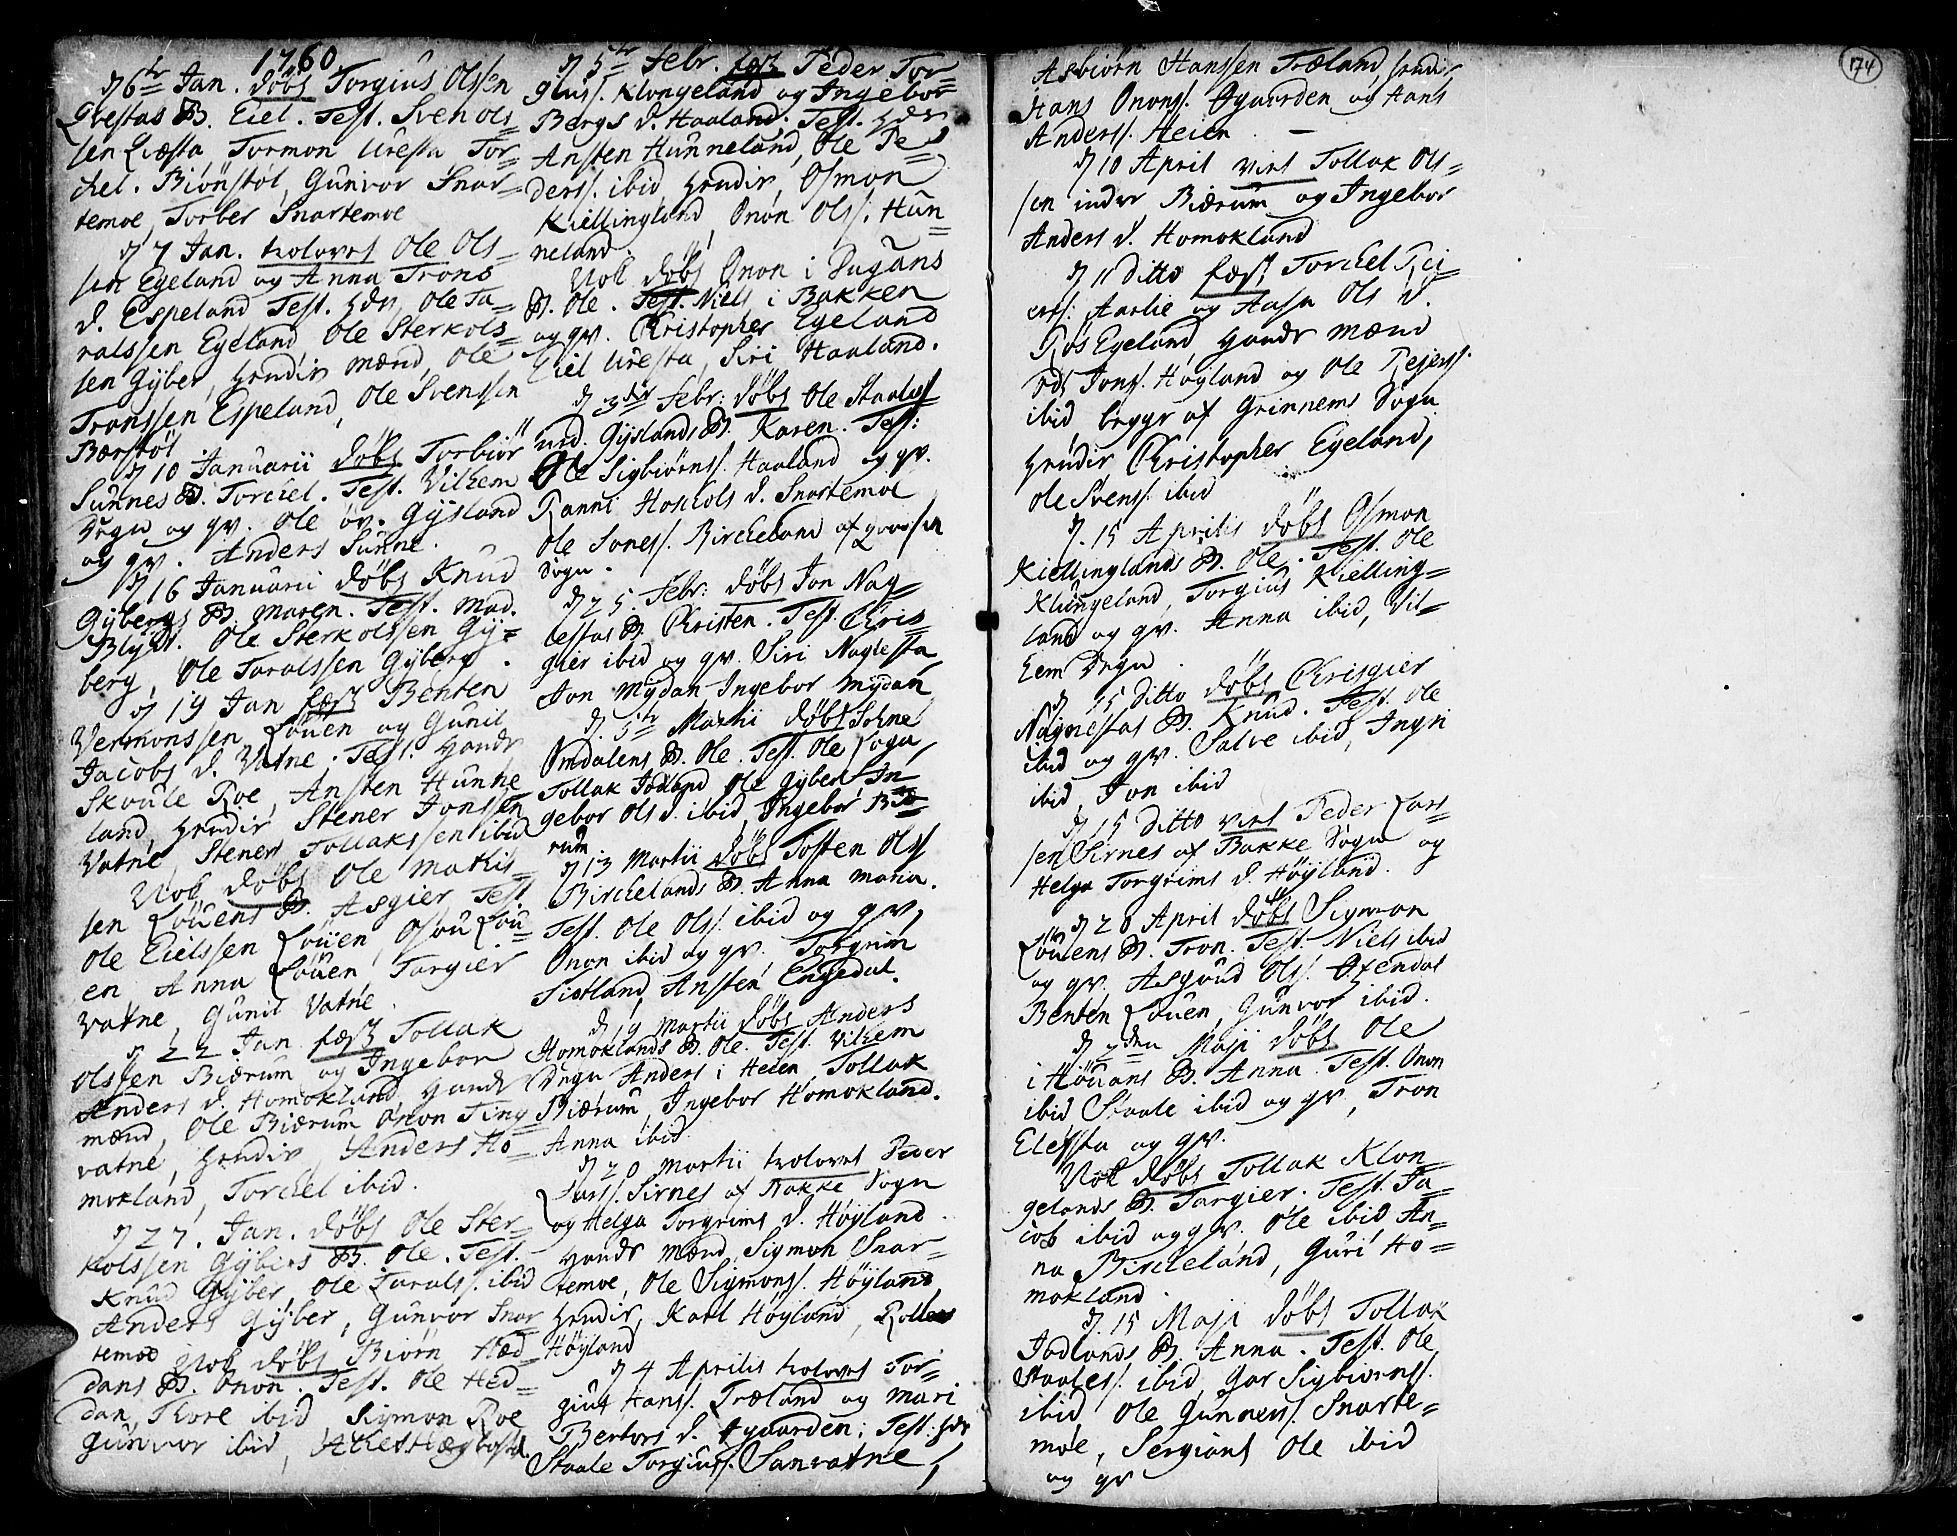 1760
d 6te Jan. döbt Torgius Olssen
Qvestas B. Eiel. Test. Sven Ols=
sen Qvæsta, Tormon Uresta, Tor=
chel. Biönstöl, Gunvor Snar=
temoe, Torber Snartemoe
d 7 Jan. trolovet Ole Ols=
sen Egeland og Anna Trons
d. Espeland Test. hds, Ole Ta=
ralssen Egeland Ole Sterkols=
sen Gÿber, hendis mænd, Ole
Tronssen Espeland, Ole Svenssen
Bærstöl
d 10 Januarii döbt Torbiör
Sunnes B. Torchel. Test. Vilhem
Degn og qv. Ole öv. Gÿsland
og qv. Anders Sunne.
d 16 Januarii döbt Knud
Gÿbergs B. Maren. Test. Mad.
Blÿdt. Ole Sterkolssen Gÿ=
berg, Ole Taralssen Gÿberg.
d 19 Jan fæst Benten
Vermonssen Löuen og Gunil
Jacobs d. Vatne. Test. Hands
Skoule Roe, Ansten Hunne
land, hendis Stener Jonssen
Vatne Stener Tollakssen ibid
Nok döbt Ole Mathis=
sen Löuens B. Asgier Test.
Ole Eielssen Löuen, Osou Löu=
en Anna Löuen Torgier
Vatne, Gunil Vatne.
d 22 Jan fæst Tollak
Olssen Biærum og Ingebor
Anders d. Homokland, Hands
mænd, Ole Biærum Onon Ting
vatne, hendis Anders Ho=
mokland, Torchel ibid.
d 27. Jan. döbt Ole Ster=
kolssen Gÿbers B. Ole. Test.
Knud Gÿber, Ole Taralss. ibid
Anders Gÿber, Gunvor Snar
temoe
Nok döbt Biörn Hæd
dans B. Onon. Test. Ole Hed=
dan, Thore ibid Sigmon Roe
Gunvor ibid,
d 5te Febr. fæst Peder Tor=
giuss. Klongeland og Ingebor
Bergs d. Haaland. Test. hds
Ansten Hunneland, Ole Pe=
derss. ibid hendis, Osmon
Kiellingland, Onon Olss. Hun=
neland
Nok döbt Onon i Dugans
B. Ole. Test. Niels i Bakken
og qv. Christopher Egeland
Eiel Uresta, Siri Haaland.
d 3die Febr: döbt Ole Staaless
nrd. Gÿslands B. Karen. Test:
Ole Sigbiörnss. Haaland og qv.
Ranni Hoskols d. Snartemoe
Ole Soness. Bircheland af
Sogn.
d 25. Febr: döbt Jon Nag=
lestas B. Christen. Test. Chris=
gier ibid og qv. Siri Naglesta
Jon Mÿdan Ingebor Mÿdan
d. 5te Martii döbt Sohne
Omdalens B. Ole. Test. Ole Sogn
Tollak Jodland Ole Gÿber In
gebor Ols d. ibid, Ingebor Biæ=
rum
d 13 Martii döbt Tosten Olss
Birchelands B. Anna Maria.
Test. Ole Olss. ibid og qv,
Onon ibid og qv, Torgrim
Siotland, Ansten Engedal.
d 19 Martii döbt Anders
Homoklands B. Ole. Test. Vilhem
Degn Anders i Heien Tollak
Biærum, Ingebor Homokland.
Anna ibid
d 20 Martii trolovet Peder
Larss. Sirnes af Bakke Sogn
og Helga Torgrims d. Höÿland
Hands Mænd, Sigmon Snar=
temoe, Ole Sigmonss. Höÿland
hendis, Karl Höÿland, Rollew
Höÿland
d 4 Aprilis trolovet Tor=
giut Hanss. Træland og Mari
Bertors d. Øgaarden; Test: hds
Staale Torgiuss. Sanvatne,
174
Asbiörn Hanssen Træland, hendis
Hans Ononss. Øgaarden og Hans
Anderss. Heien. —
d 10 April viet Tollak Ols=
sen indre Biærum og Ingebor
Anders d. Homokland
d 11 Ditto fæst Torchel Rei=
erss. Aarlie og Aasa Ols d.
Rös Egeland, Hands Mænd
Ods Jonss. Höÿland og Ole Rejerss.
ibid begge af Grinnems Sogn
hendis Christopher Egeland,
Ole Svenss. ibid
d. 15 Aprilis döbt Osmon
Kiellinglands B. Ole. Test. Ole
Klungeland, Torgius Kielling=
land og qv. Anna ibid, Vil=
hem Degn.
d 15 Ditto döbt Chrisgier
Naglestas B. Knud. Test. Ole
ibid og qv. Salve ibid, Ingri
ibid, Jon ibid
d 15 Ditto viet Peder Lars
sen Sirnes af Bakke Sogn og
Helga Torgrims d. Höÿland.
d 20 April döbt Sigmon
Löuens B. Tron. Test. Niels ibid
og qv. Asgoud Olss. Øxendal
Benten Löuen, Gunvor ibid.
d 2den Maji döbt Ole
i Höuans B. Anna. Test. Onon
ibid Staale ibid og qv, Tron
Elessta og qv.
Nok döbt Tollak Klon=
gelands B. Torgier. Test. Ja=
cob ibid og qv. Ole ibid An=
na Bircheland, Guri Ho=
mokland.
d. 15 Maji döbt Tollak
Jodlands B. Anna. Test. Ole
Staaless. ibid, Gar Sigbiornss.
ibid Ole Gunnerss. Snarte=
moe, Sergiant Ole ibid
og qv